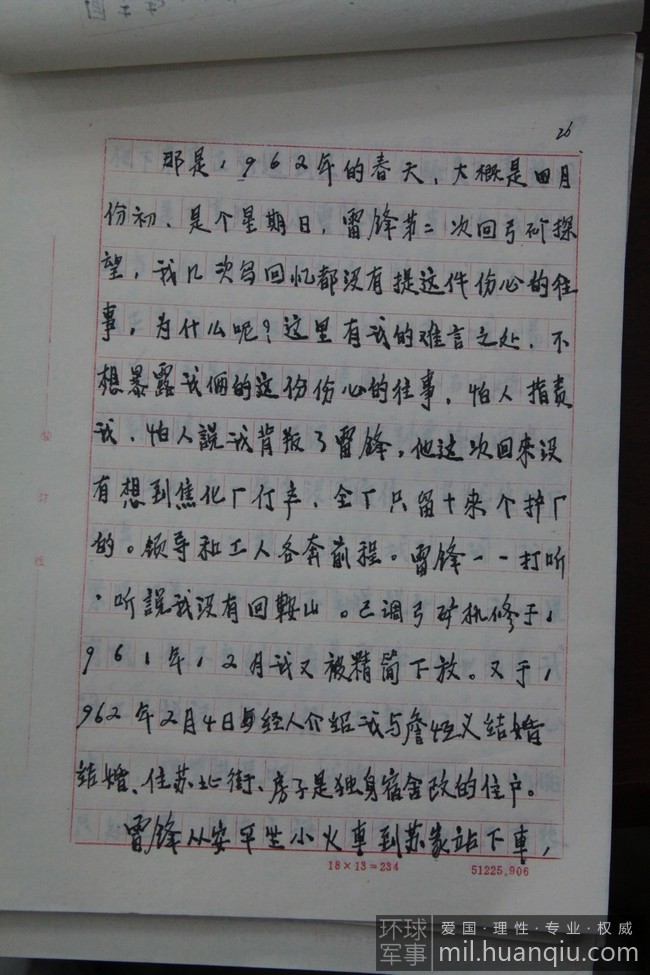 26
那是1962年的春天，大概是四月
份初，是个星期日，雷锋第二次回弓矿探
望，我几次写回忆都没有提这件份心的往
事，为什么呢？这里有我的难言之处，不
想暴露我俩的这份份心的往事，怕人指责
我，怕人説我背叛了雷锋，他这次回来没
有想到焦化厂停产，全厂只留十来个护厂
的。领导和工人各奔前程。雷锋一一打听
，听説我没有回鞍山。已调弓矿机修于1
961年12月我又被精简下放。又于1
962年2月4日每经人介绍我与詹恒义结婚
结婚、住苏北街、房子是独身宿舍改的住户。
雷锋从安平坐小火車到苏家站下車，
18×13=234
51225.906
环球军事
爱国·理性·专业·权威
mil.huanqiu.com